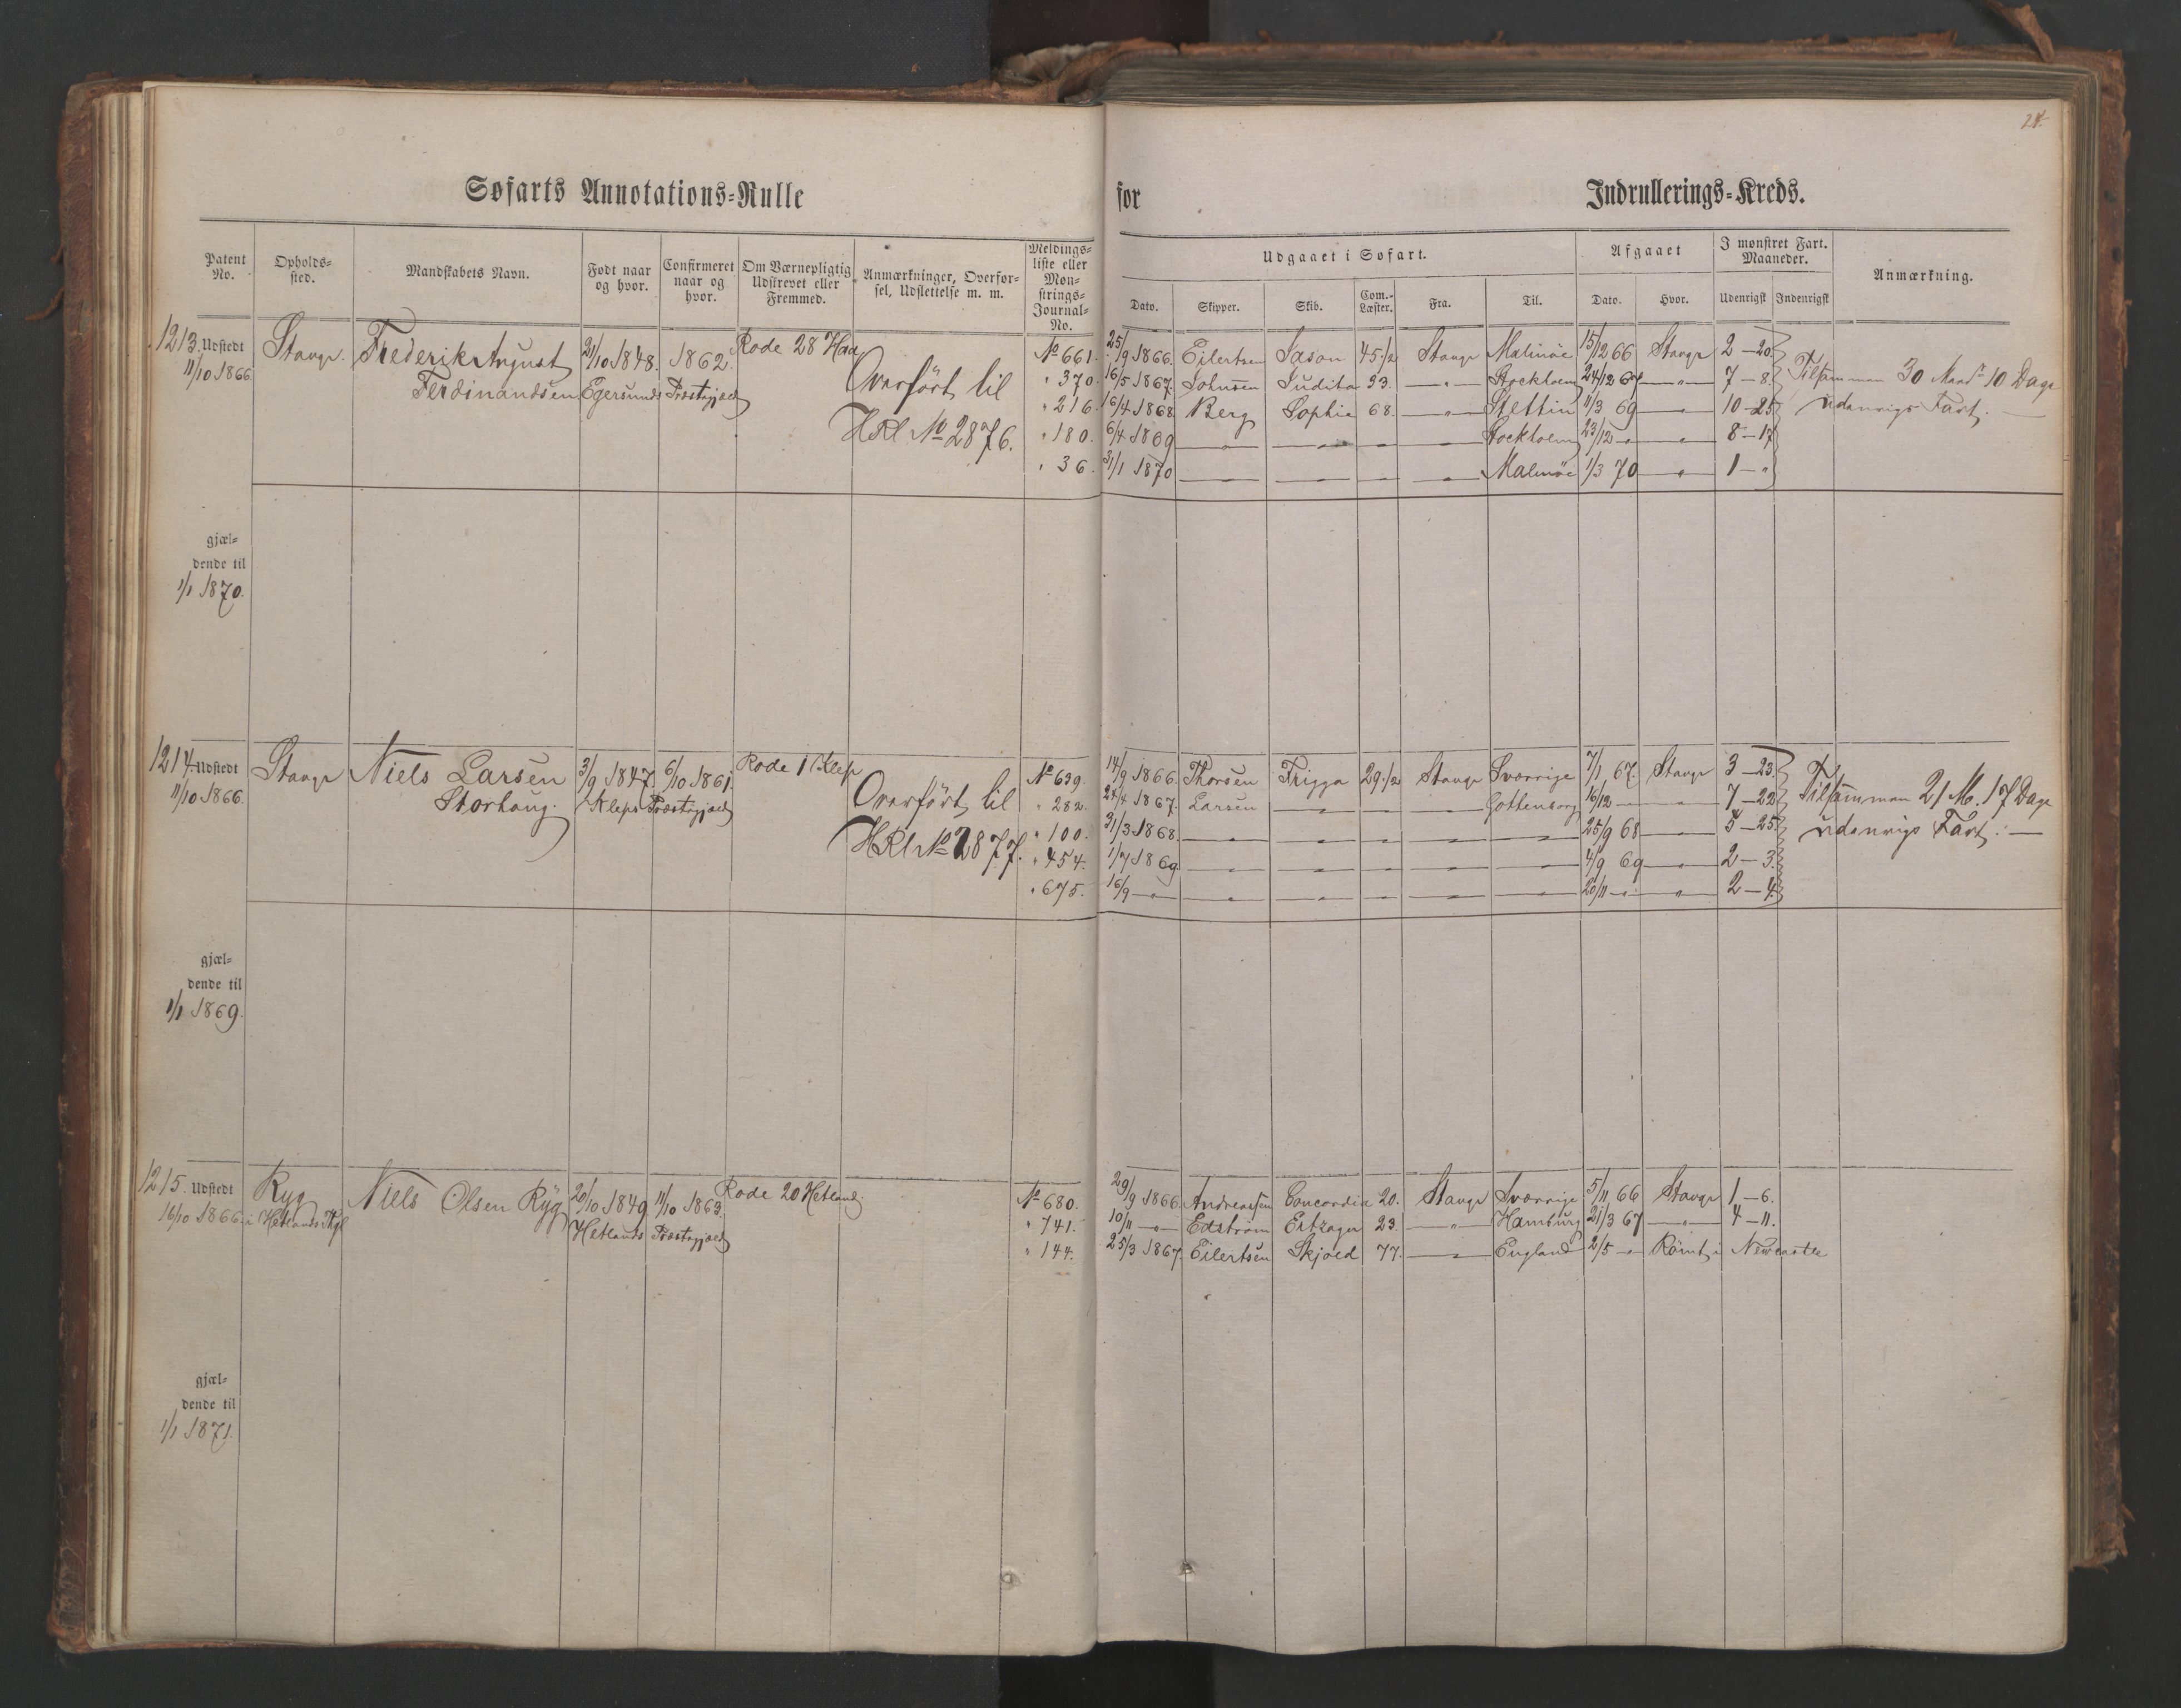 24.
Søfarts Annotations-Rulle for Indrullerings-Kreds.
Patent No. Opholds-sted. Mandskabets Navn. Født naar og hvor. Confirmeret naar og hvor. Om Værnepligtig Udskrevet eller Fremmed. Anmærkninger, Overførsel, Udslettelse m. m. Meldings-liste eller Møn-strings-Journal-No.
Udgaaet i Søfart. Afgaaet I mønstret Fart. Maaneder. Anmærkning.
Dato. Skipper. Skib. Com.-Læster. Fra. Til. Dato. Hvor. Udenrigsk Indenrigsk
1213. Udstedt Stavgr. Frederik August 21/10 1848. 1862. Rode 28 No 661. 25/9 1866. Eilertsen Jason 45 1/2 Stavgr Malmöe 15/12 66 Stavgr 2 — 20.
11/10 1866. Ferdinandsen Egersunds Præstegjæld Overført til " 370. 16/5 1867. Johnsen Judita 93. —"— Stockholm 24/12 67 —"— 7 — 8. Tilsamman 30 Maad 10 Dage
" 216. 16/4 1868 Berg Sophie 68. —"— Stettin 11/3 69 —"— 10 — 25. udenrigs Fart. —
HRl No 2876. " 180. 6/4 1869 —"— —"— —"— —"— Stockholm 23/12 —"— —"— 8 — 17
" 36. 31/1 1870 —"— —"— —"— —"— Malmöe 1/3 70 —"— 1 — "
gjæl-
dende til
1/1 1870.
1214. Udstedt Stavgr Niels Larsen 3/9 1847. 6/10 1861. Rode 1 Klep No 639. 14/9 1866. Thorsen Frigga 29 1/2 Stavgr Sverrige 7/1 67. Stavgr 3 — 23.
11/10 1866. Storhaug. Kleps Præstegjæld Overført til " 282. 24/4 1867. Larsen —"— —"— —"— Gottenborg 16/12 —"— —"— 7 — 22 Tilsamman 21 M. 17 Dage
HRl No 2877. " 100. 31/3 1868. —"— —"— —"— —"— —"— 25/9 68 —"— 5 — 25. udenrigs Fart. —
" 454. 1/7 1869 —"— —"— —"— —"— —"— 4/9 69 —"— 2 — 3.
" 675. 16/9 —"— —"— —"— —"— —"— —"— 20/11 —"— —"— 2 — 4.
gjæl-
dende til
1/1 1869.
1215. Udstedt Ryg Niels Olsen Ryg 20/10 1849 11/10 1863. Rode 20 Hetland. No 680. 29/9 1866. Andreassen Concordia 20. Stavgr Sverrige 5/11 66 Stavgr 1 — 6.
16/10 1866. i Hetlands Hetlands Præstegjæld " 741. 10/11 —"— Edström 23. —"— Hamburg 21/3 67 —"— 4 — 11.
" 144. 25/3 1867. Eilertsen Skjold 77. —"— England 2/5 —"— Römt i Newcastle
gjæl-
dende til
1/1 1871.